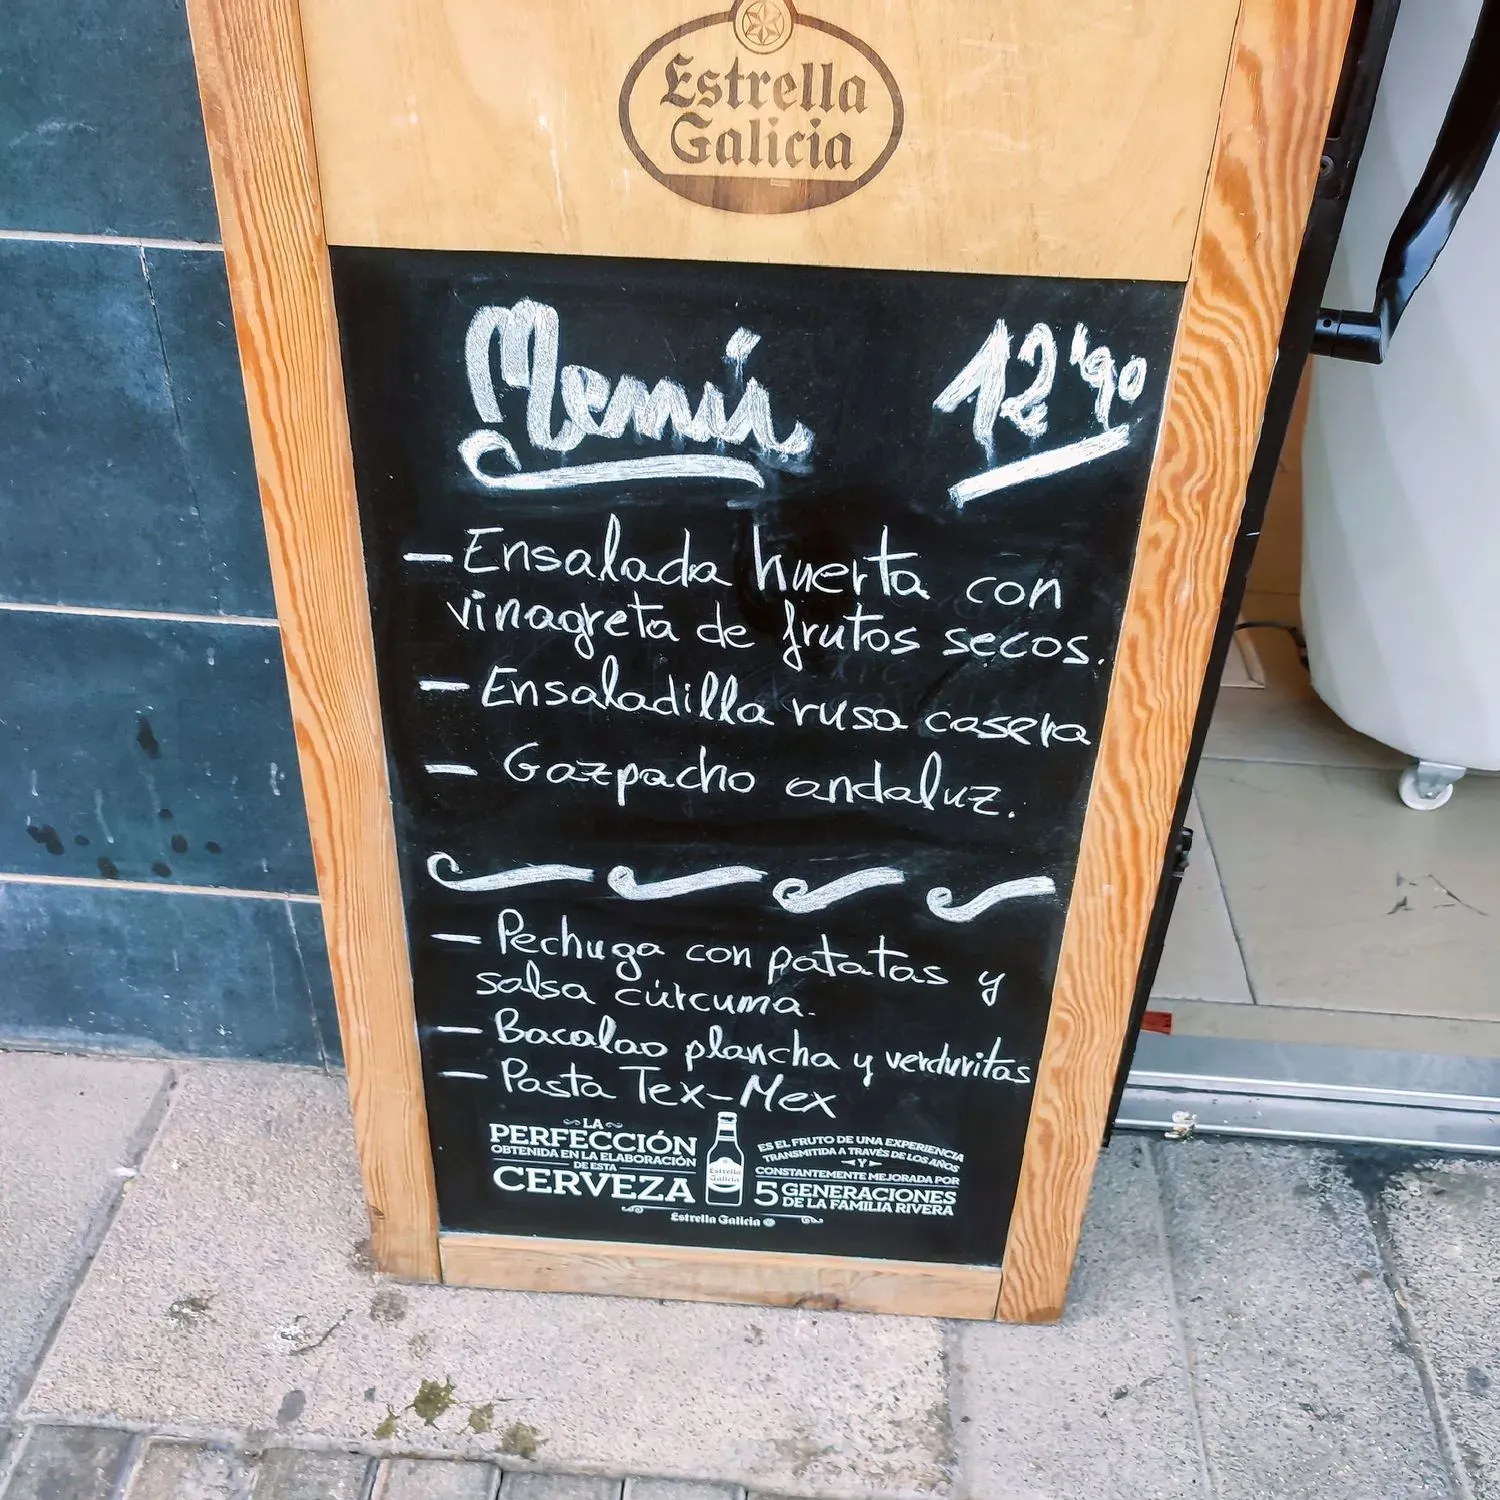 Estrella
Galicia
Menú 12'90
- Ensalada huerta con
vinagreta de frutos secos.
- Ensaladilla rusa casera
- Gazpacho andaluz.
- Pechuga con patatas y
salsa cúrcuma.
- Bacalao plancha y verduritas
- Pasta Tex-Mex
LA
PERFECCIÓN
OBTENIDA EN LA ELABORACIÓN
DE ESTA
CERVEZA
Estrella
Galicia
ES EL FRUTO DE UNA EXPERIENCIA
TRANSMITIDA A TRAVÉS DE LOS AÑOS
Y
CONSTANTEMENTE MEJORADA POR
5 GENERACIONES
DE LA FAMILIA RIVERA
Estrella Galicia